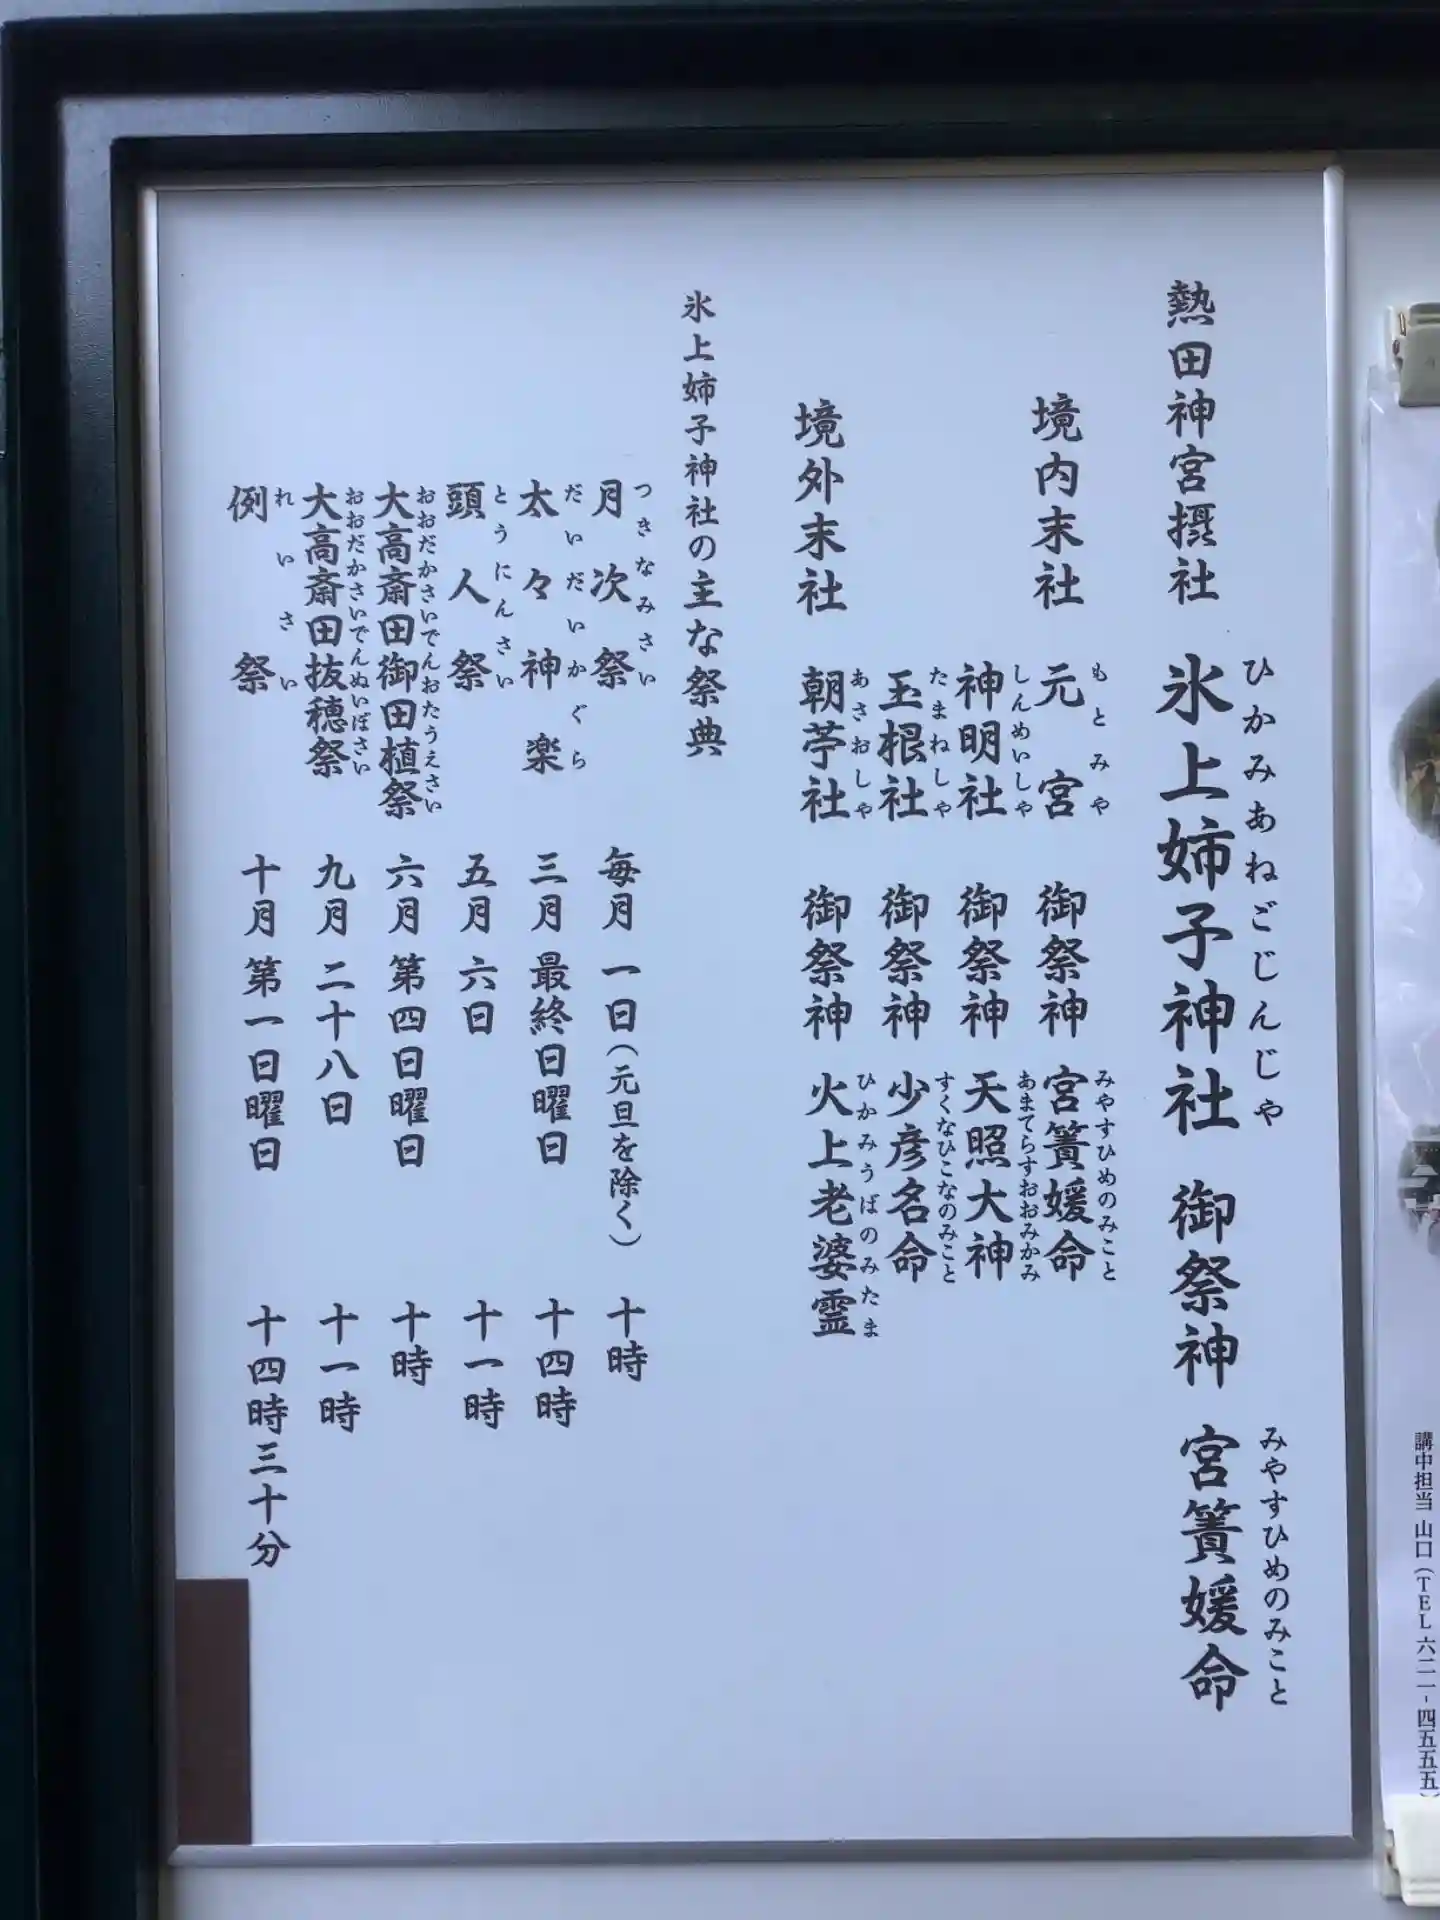 熱田神宮摂社 氷上姉子神社 御祭神 宮簀媛命
ひかみあねごじんじゃ みやすひめのみこと
境内末社 元宮 御祭神 宮簀媛命
もとみや みやすひめのみこと
神明社 御祭神 天照大神
しんめいしゃ あまてらすおおみかみ
玉根社 御祭神 少彦名命
たまねしゃ すくなひこなのみこと
境外末社 朝苧社 御祭神 火上老婆霊
あさおしゃ ひかみうばのみたま
氷上姉子神社の主な祭典
月次祭 毎月 一日(元旦を除く) 十時
つきなみさい
太々神楽 三月 最終日曜日 十四時
だいだいかぐら
頭人祭 五月 六日 十一時
とうにんさい
大高斎田御田植祭 六月 第四日曜日 十時
おおだかさいでんおたうえさい
大高斎田抜穂祭 九月 二十八日 十一時
おおだかさいでんぬいぼさい
例祭 十月 第一日曜日 十四時三十分
れいさい
講中担当 山口(TEL 六二一-四五五五)